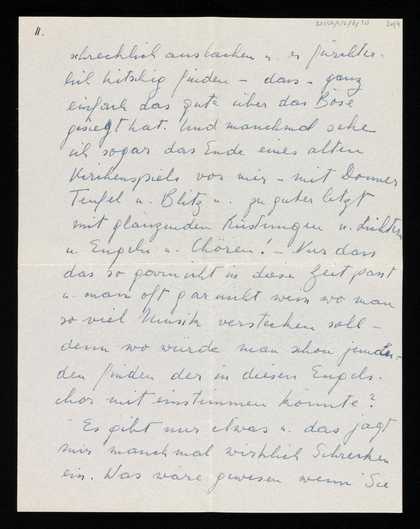 11.
schrecklich auslachen u. es fürchter-
lich kitschig finden – dass – ganz
einfach das gute über das Böse
gesiegt hat. Und manchmal sehe
ich sogar das Ende eines alten
Kirchenspiels vor mir – mit Donner
Teufel u. Blitz u. zu guter letzt
mit glänzenden Rüstungen u. Lichtern
u. Engeln u. Chören! – Nur dass
das so garnicht in diese Zeit passt
u. man oft garnicht weiss wo man
so viel Musik verstecken soll –
denn wo würde man schon jeman-
den finden der in diesen Engels-
chor mit einstimmen könnte?
Es gibt nur etwas u. das jagt
mir manchmal wirklich Schrecken
ein. Was wäre gewesen wenn Sie